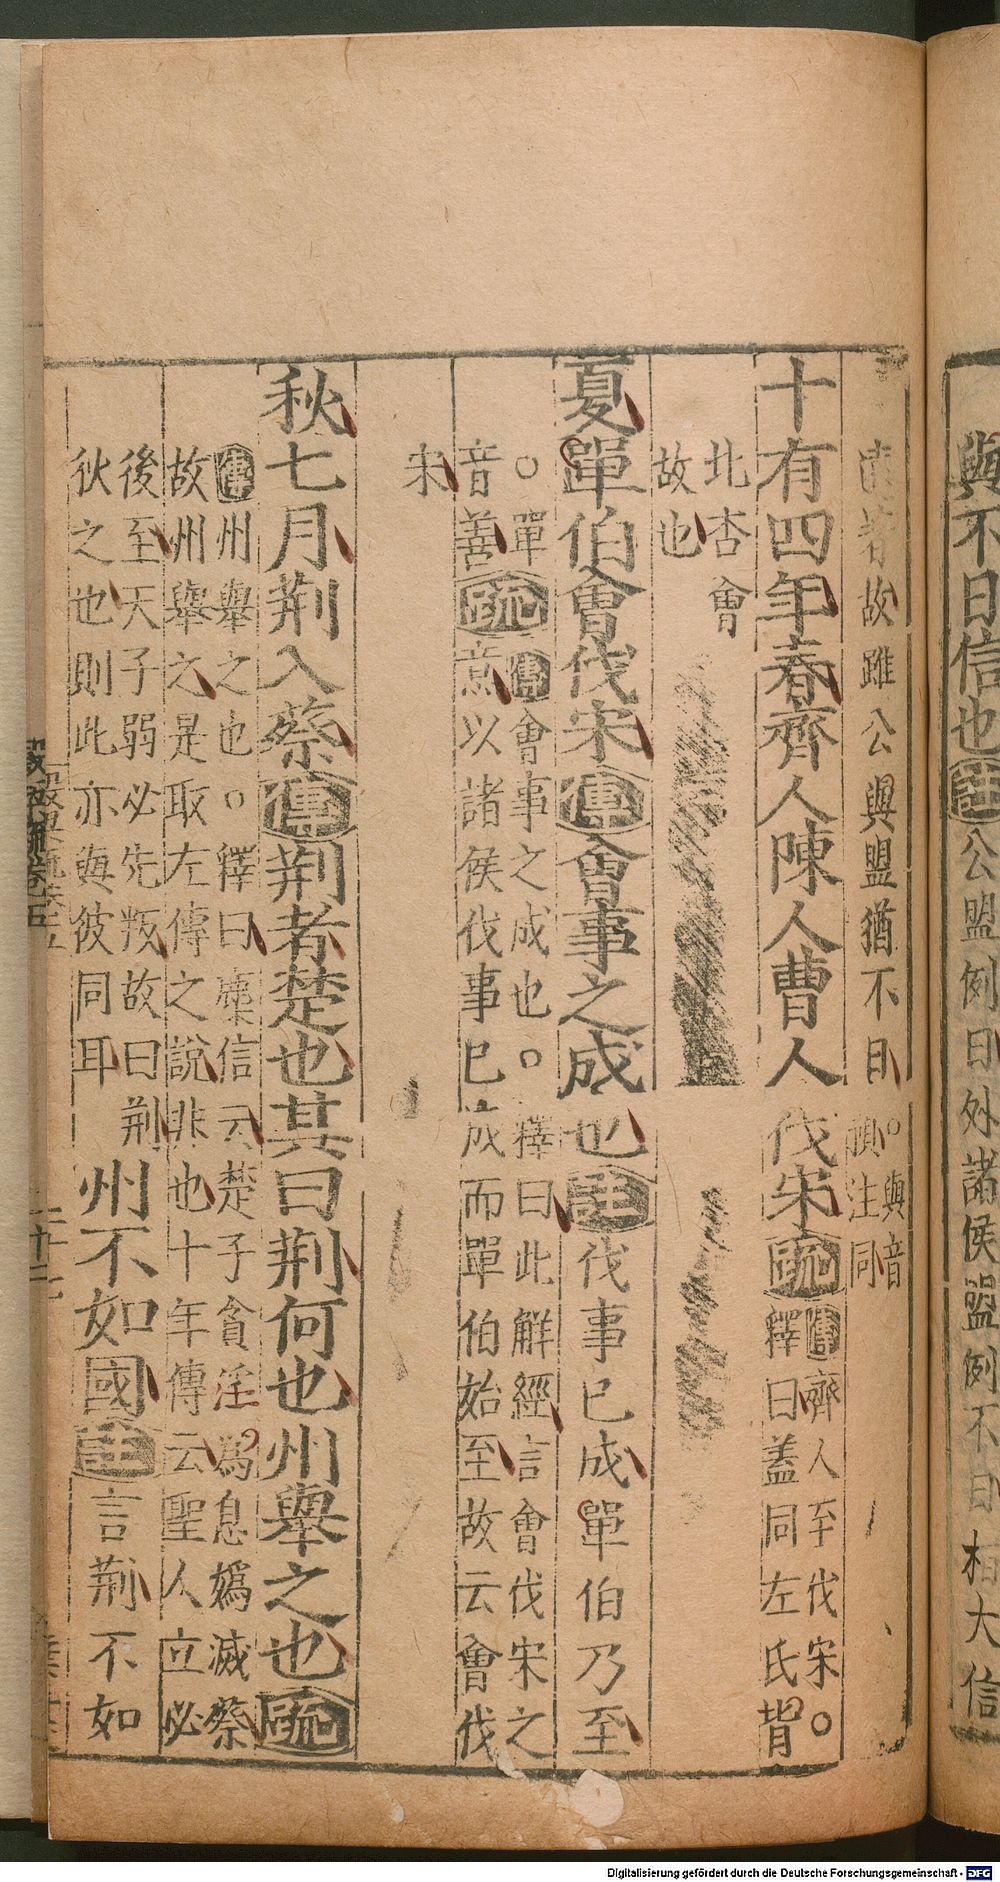 與不日信也註公盟例日外諸侯盟例不日桓大信
故雖公與盟猶不日○與音
預注同
十有四年春齊人陳人曹人伐宋疏傳齊人至伐宋○
釋曰蓋同左氏背
北杏會
故也
夏單伯會伐宋傳會事之成也註伐事已成單伯乃至
○單
音善疏傳會事之成也○釋曰此解經言會伐宋之
意以諸侯伐事已成而單伯始至故云會伐
宋
秋七月荆入蔡傳荆者楚也其曰荆何也州舉之也疏
傳州舉之也○釋曰麋信云楚子貪淫為息媯滅蔡
故州舉之是取左傳之說非也十年傳云聖人立必
後至天子弱必先叛故曰荆
狄之也則此亦與彼同耳
州不如國註言荆不如
Digitalisierung gefördert durch die Deutsche Forschungsgemeinschaft - DFG